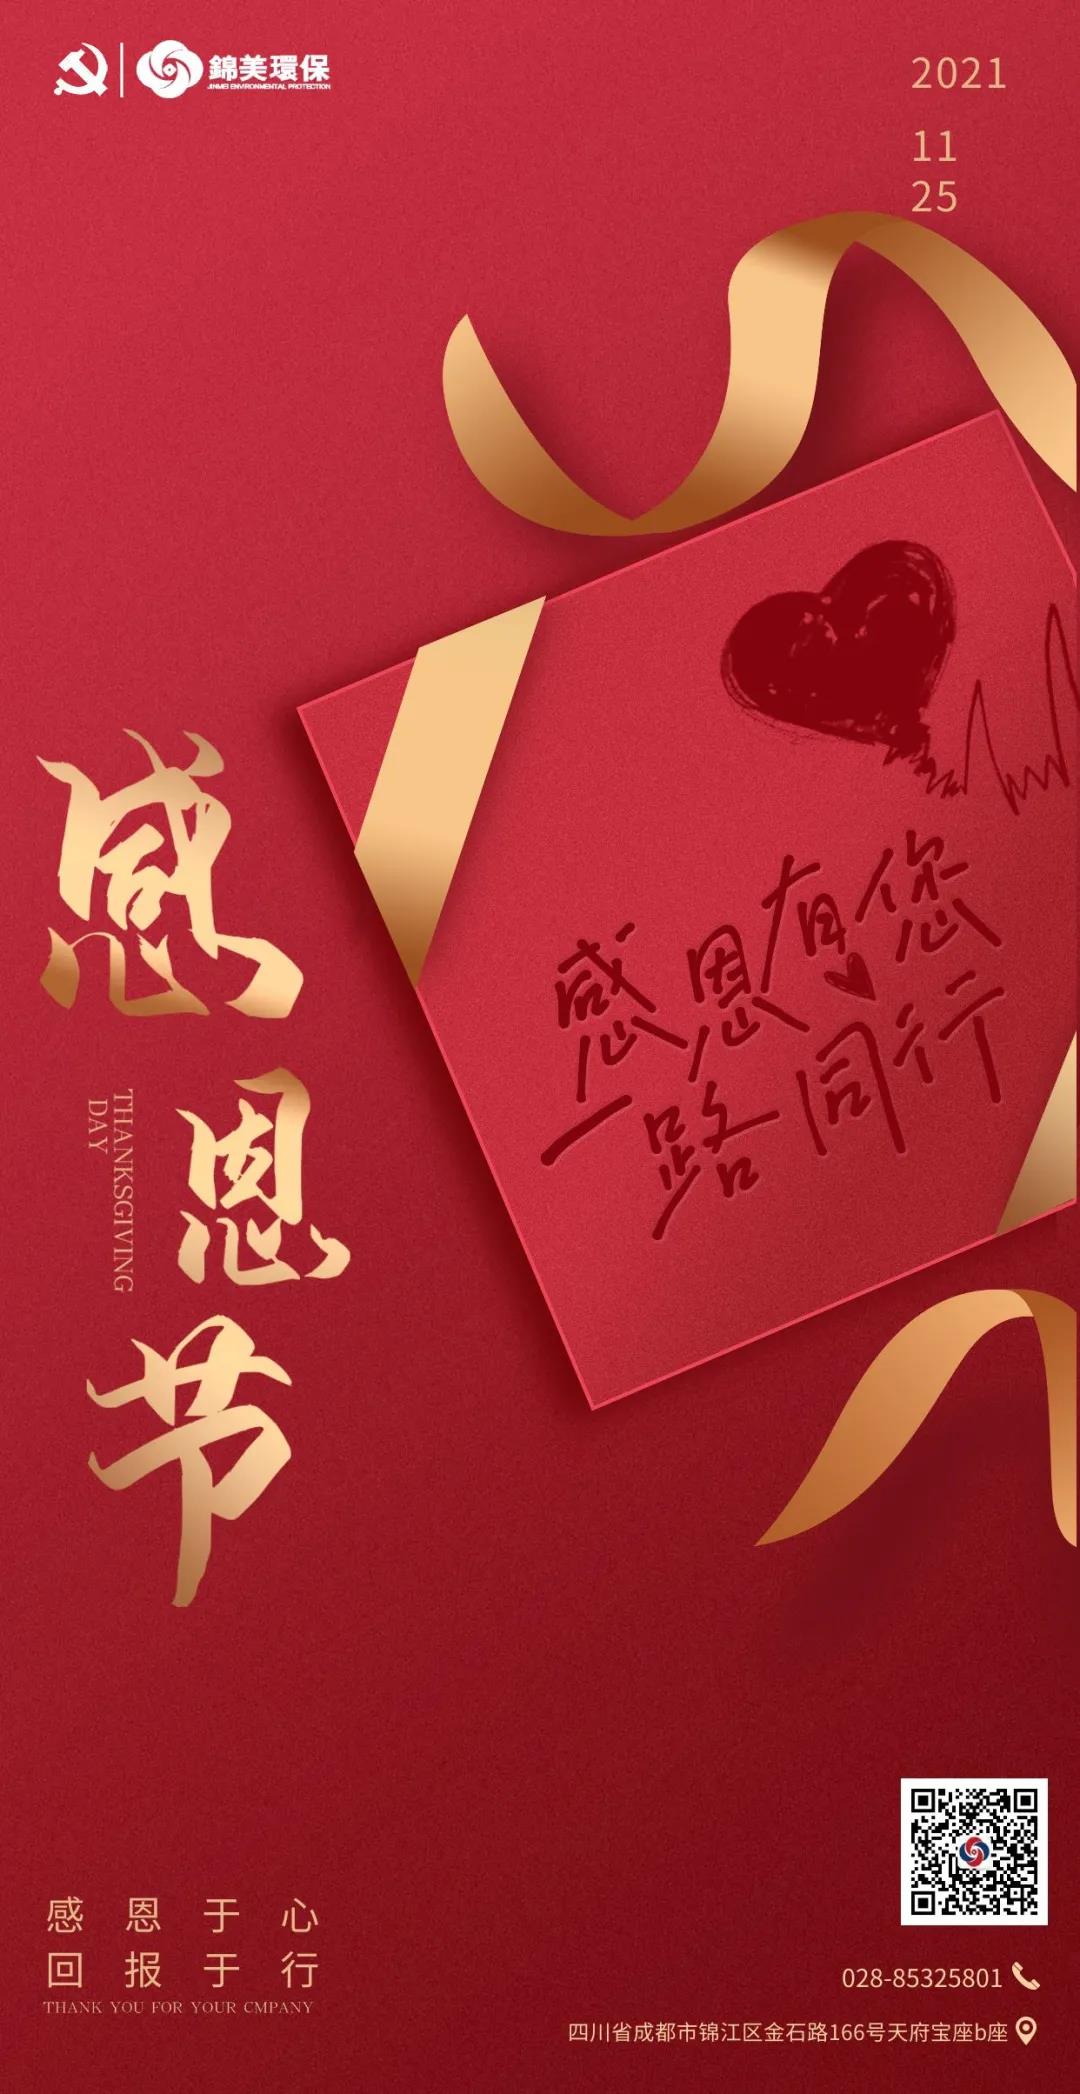 錦美環保
JINMEI ENVIRONMENTAL PROTECTION
2021
11
25
感恩有您
一路同行
感恩节
THANKSGIVING
DAY
感恩于心
回报于行
THANK YOU FOR YOUR CMPANY
028-85325801
四川省成都市锦江区金石路166号天府宝座b座